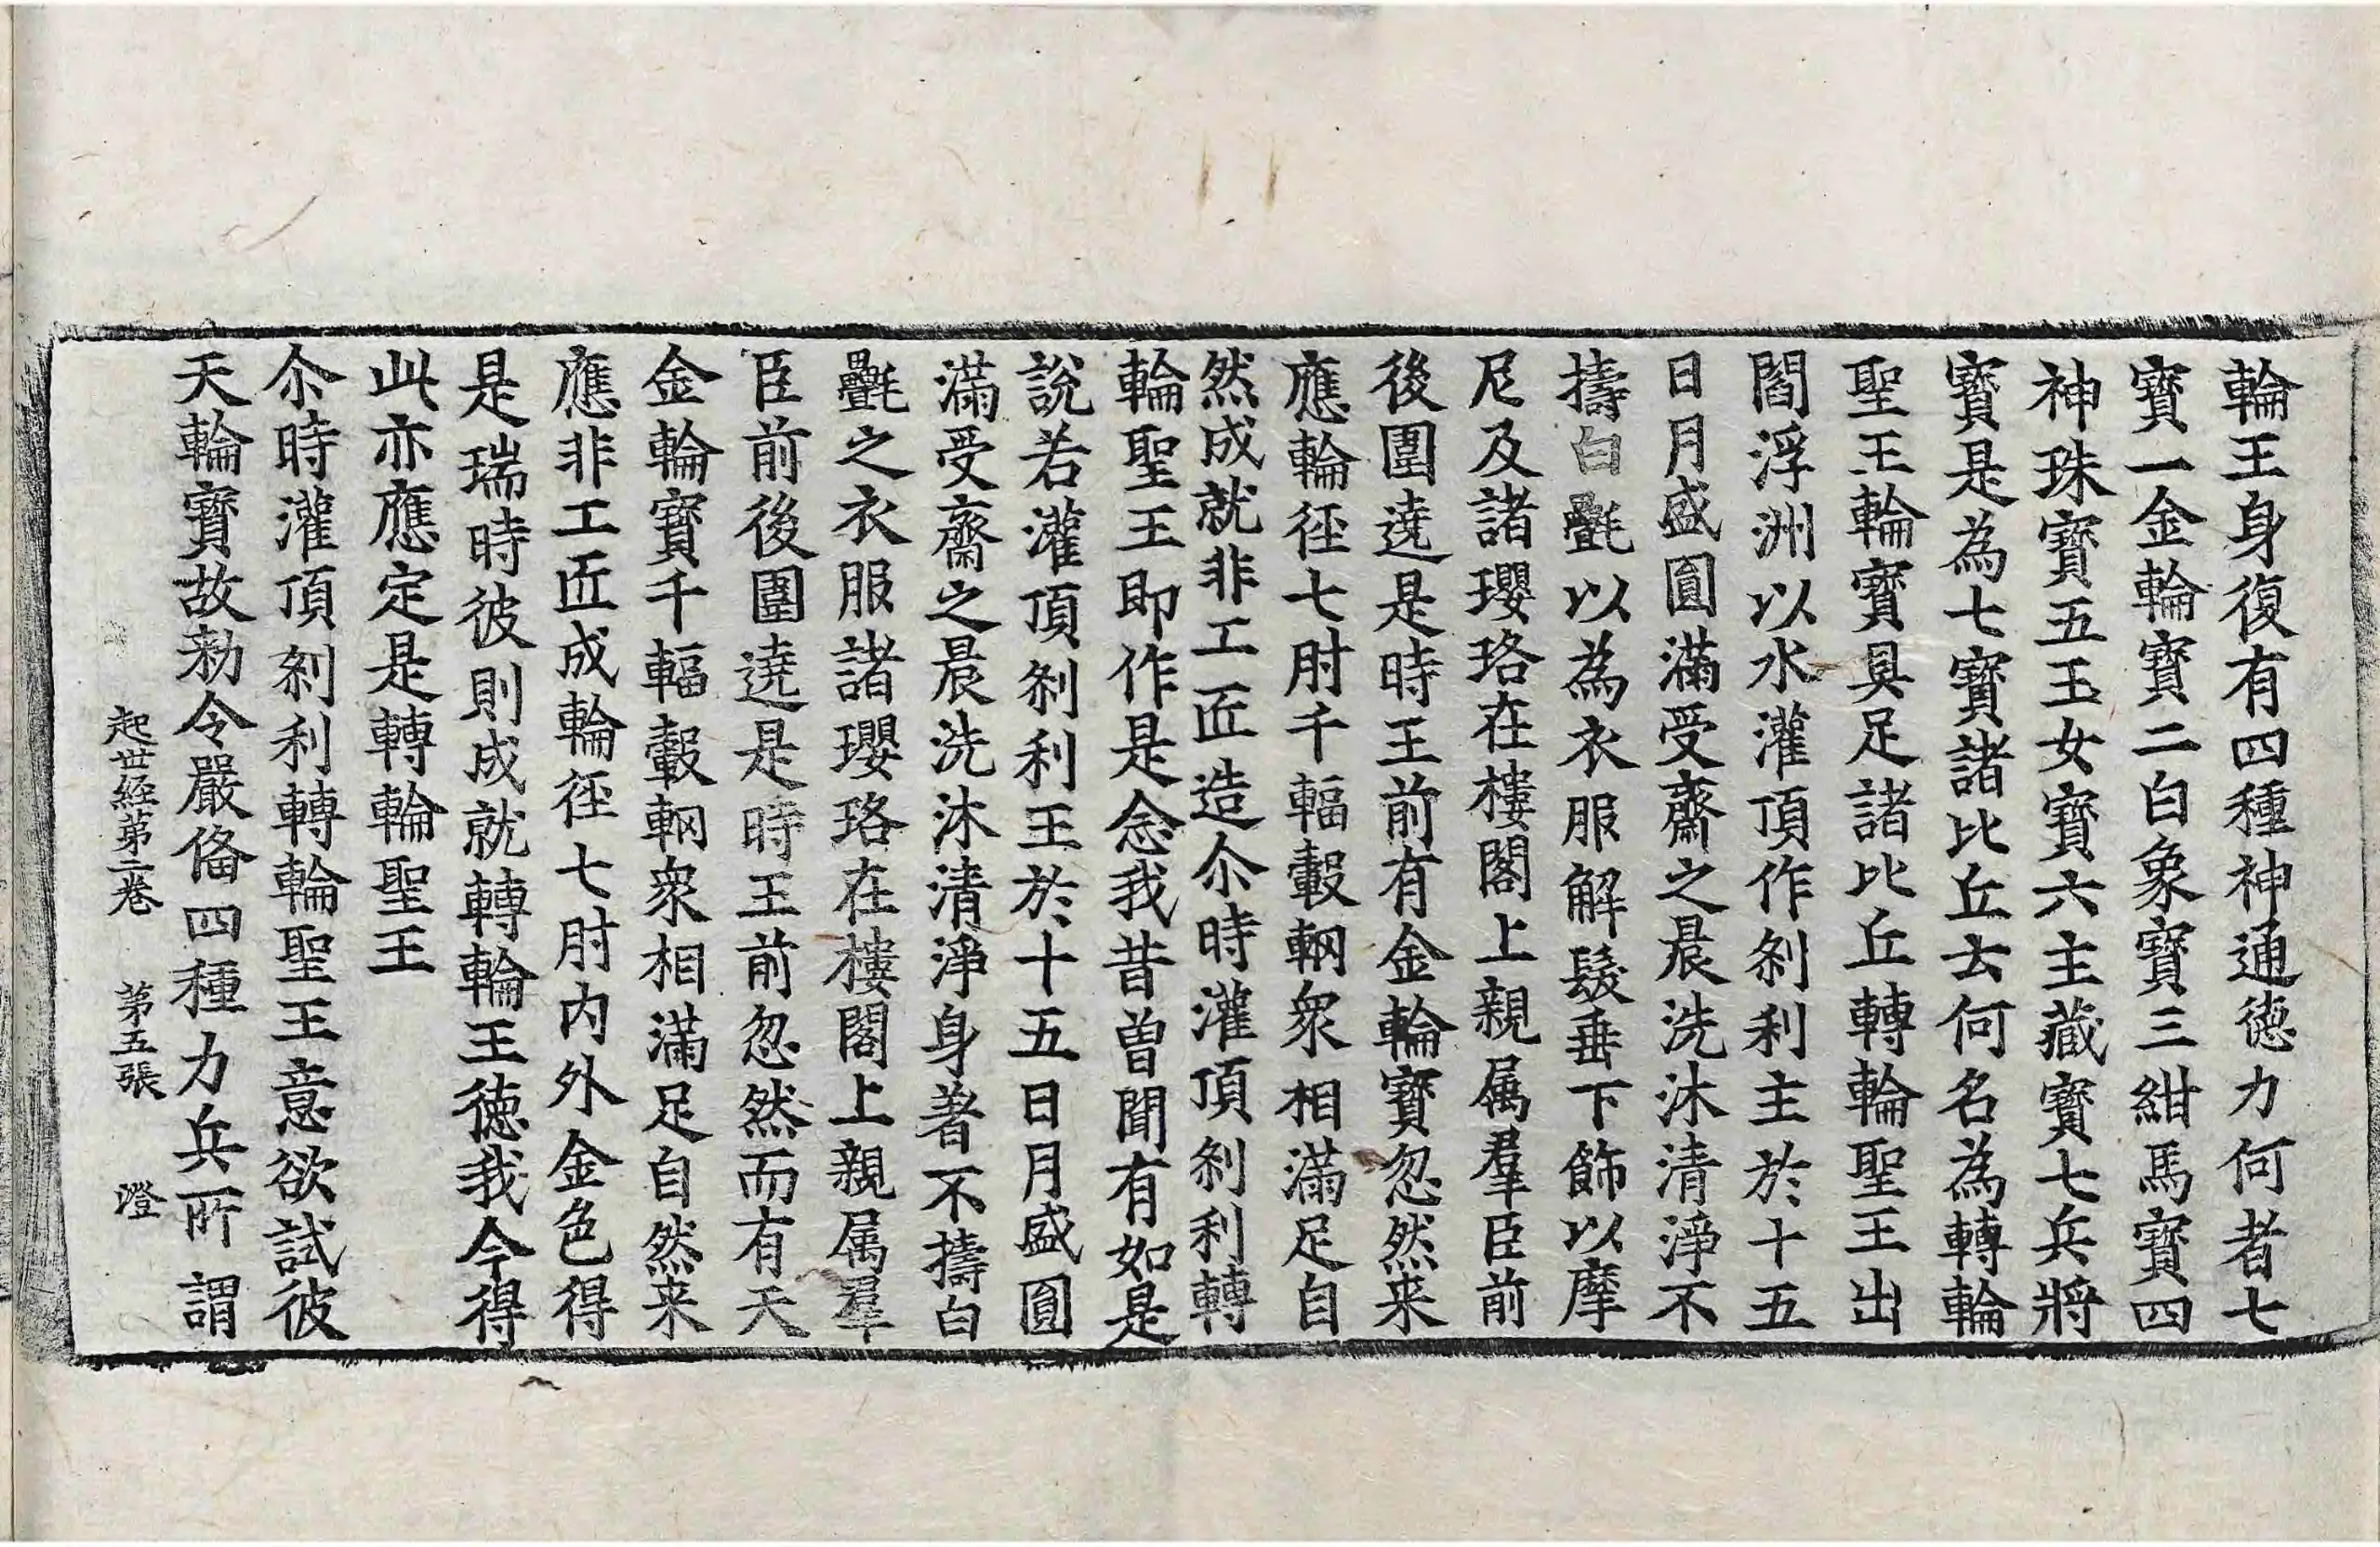 輪王身復有四種神通德力何者七
寶一金輪寶二白象寶三紺馬寶四
神珠寶五玉女寶六主藏寶七兵將
寶是為七寶諸比丘去何名為轉輪
聖王輪寶具足諸比丘轉輪聖王出
閻浮洲以水灌頂作刹利主於十五
日月盛圓滿受齋之晨洗沐清淨不
擣白㲲以為衣服解髮垂下飾以摩
尼及諸瓔珞在樓閣上親属羣臣前
後圍遶是時王前有金輪寶忽然来
應輪徑七肘千輻轂輞衆相滿足自
然成就非工匠造尒時灌頂刹利轉
輪聖王即作是念我昔曽聞有如是
說若灌頂刹利王於十五日月盛圓
滿受齋之晨洗沐清淨身著不擣白
㲲之衣服諸瓔珞在樓閣上親属羣
臣前後圍遶是時王前忽然而有天
金輪寶千輻轂輞衆相滿足自然来
應非工匠成輪徑七肘内外金色得
是瑞時彼則成就轉輪王德我今得
此亦應定是轉輪聖王
尒時灌頂刹利轉輪聖王意欲試彼
天輪寶故勑令嚴俻四種力兵所謂
起世經第二卷 第五張 澄